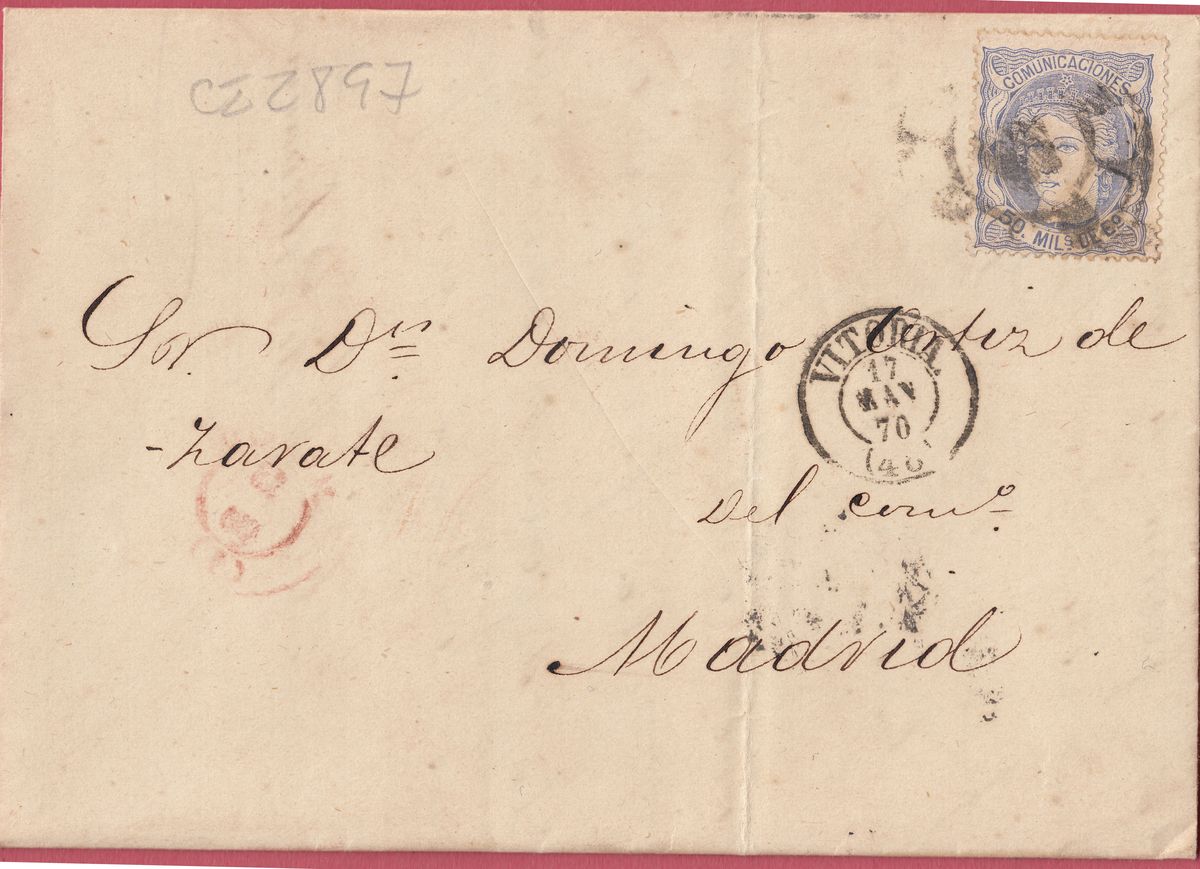 CE2897
COMUNICACIONES
50. MILS DE Eo.
Sor. Dn Domingo Ortiz de
-Zarate
VITORIA.
17
MAY
70
(46)
del comº.
Madrid